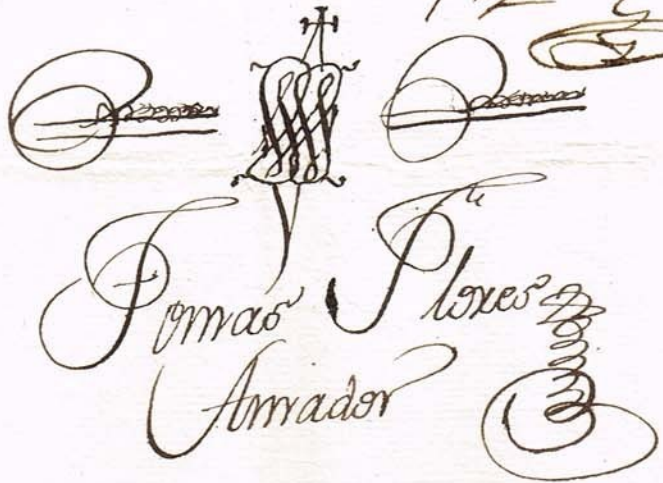 Tomas Flores
Amador